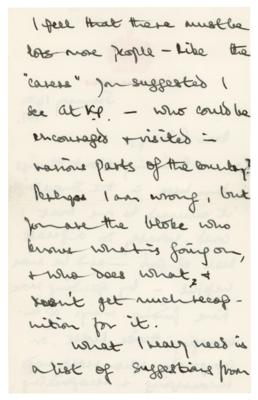 I feel that there must be
lots more people – like the
"carers" you suggested I
see at K.P. – who could be
encouraged + visited in
various parts of the country?
Perhaps I am wrong, but
you are the bloke who
knows what is going on,
+ who does what, +
doesn't get much recog-
nition for it.
What I really need is
a list of suggestions from